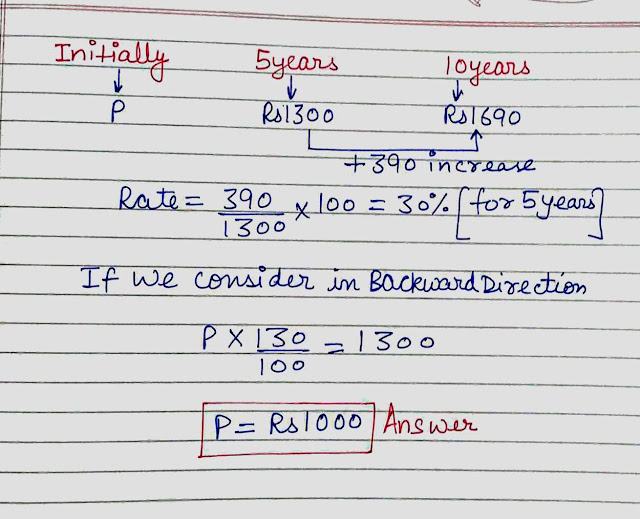 Initially 5years 10years
P Rs1300 Rs1690
+390 increase
Rate = 390/1300 × 100 = 30% [for 5years]
If we consider in Backward Direction
P × 130/100 = 1300
P = Rs1000 Answer